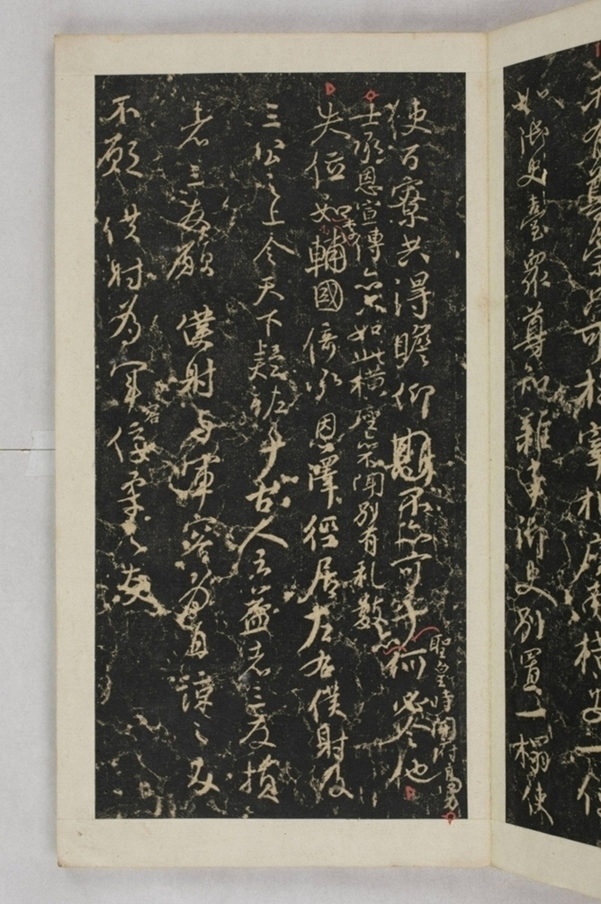 如御史臺眾尊知雜事御史別置一榻使
使百寮共得瞻仰不亦可乎何必令他
聖皇時開府高力
士承恩宣傳亦只如此橫座亦不聞別有礼數
失位如李輔國倚承恩澤徑居左右僕射及
三公之上令天下疑怪乎古人云益者三友損
者三友願僕射與軍容為直諒之友
不願僕射為軍容佞柔之友